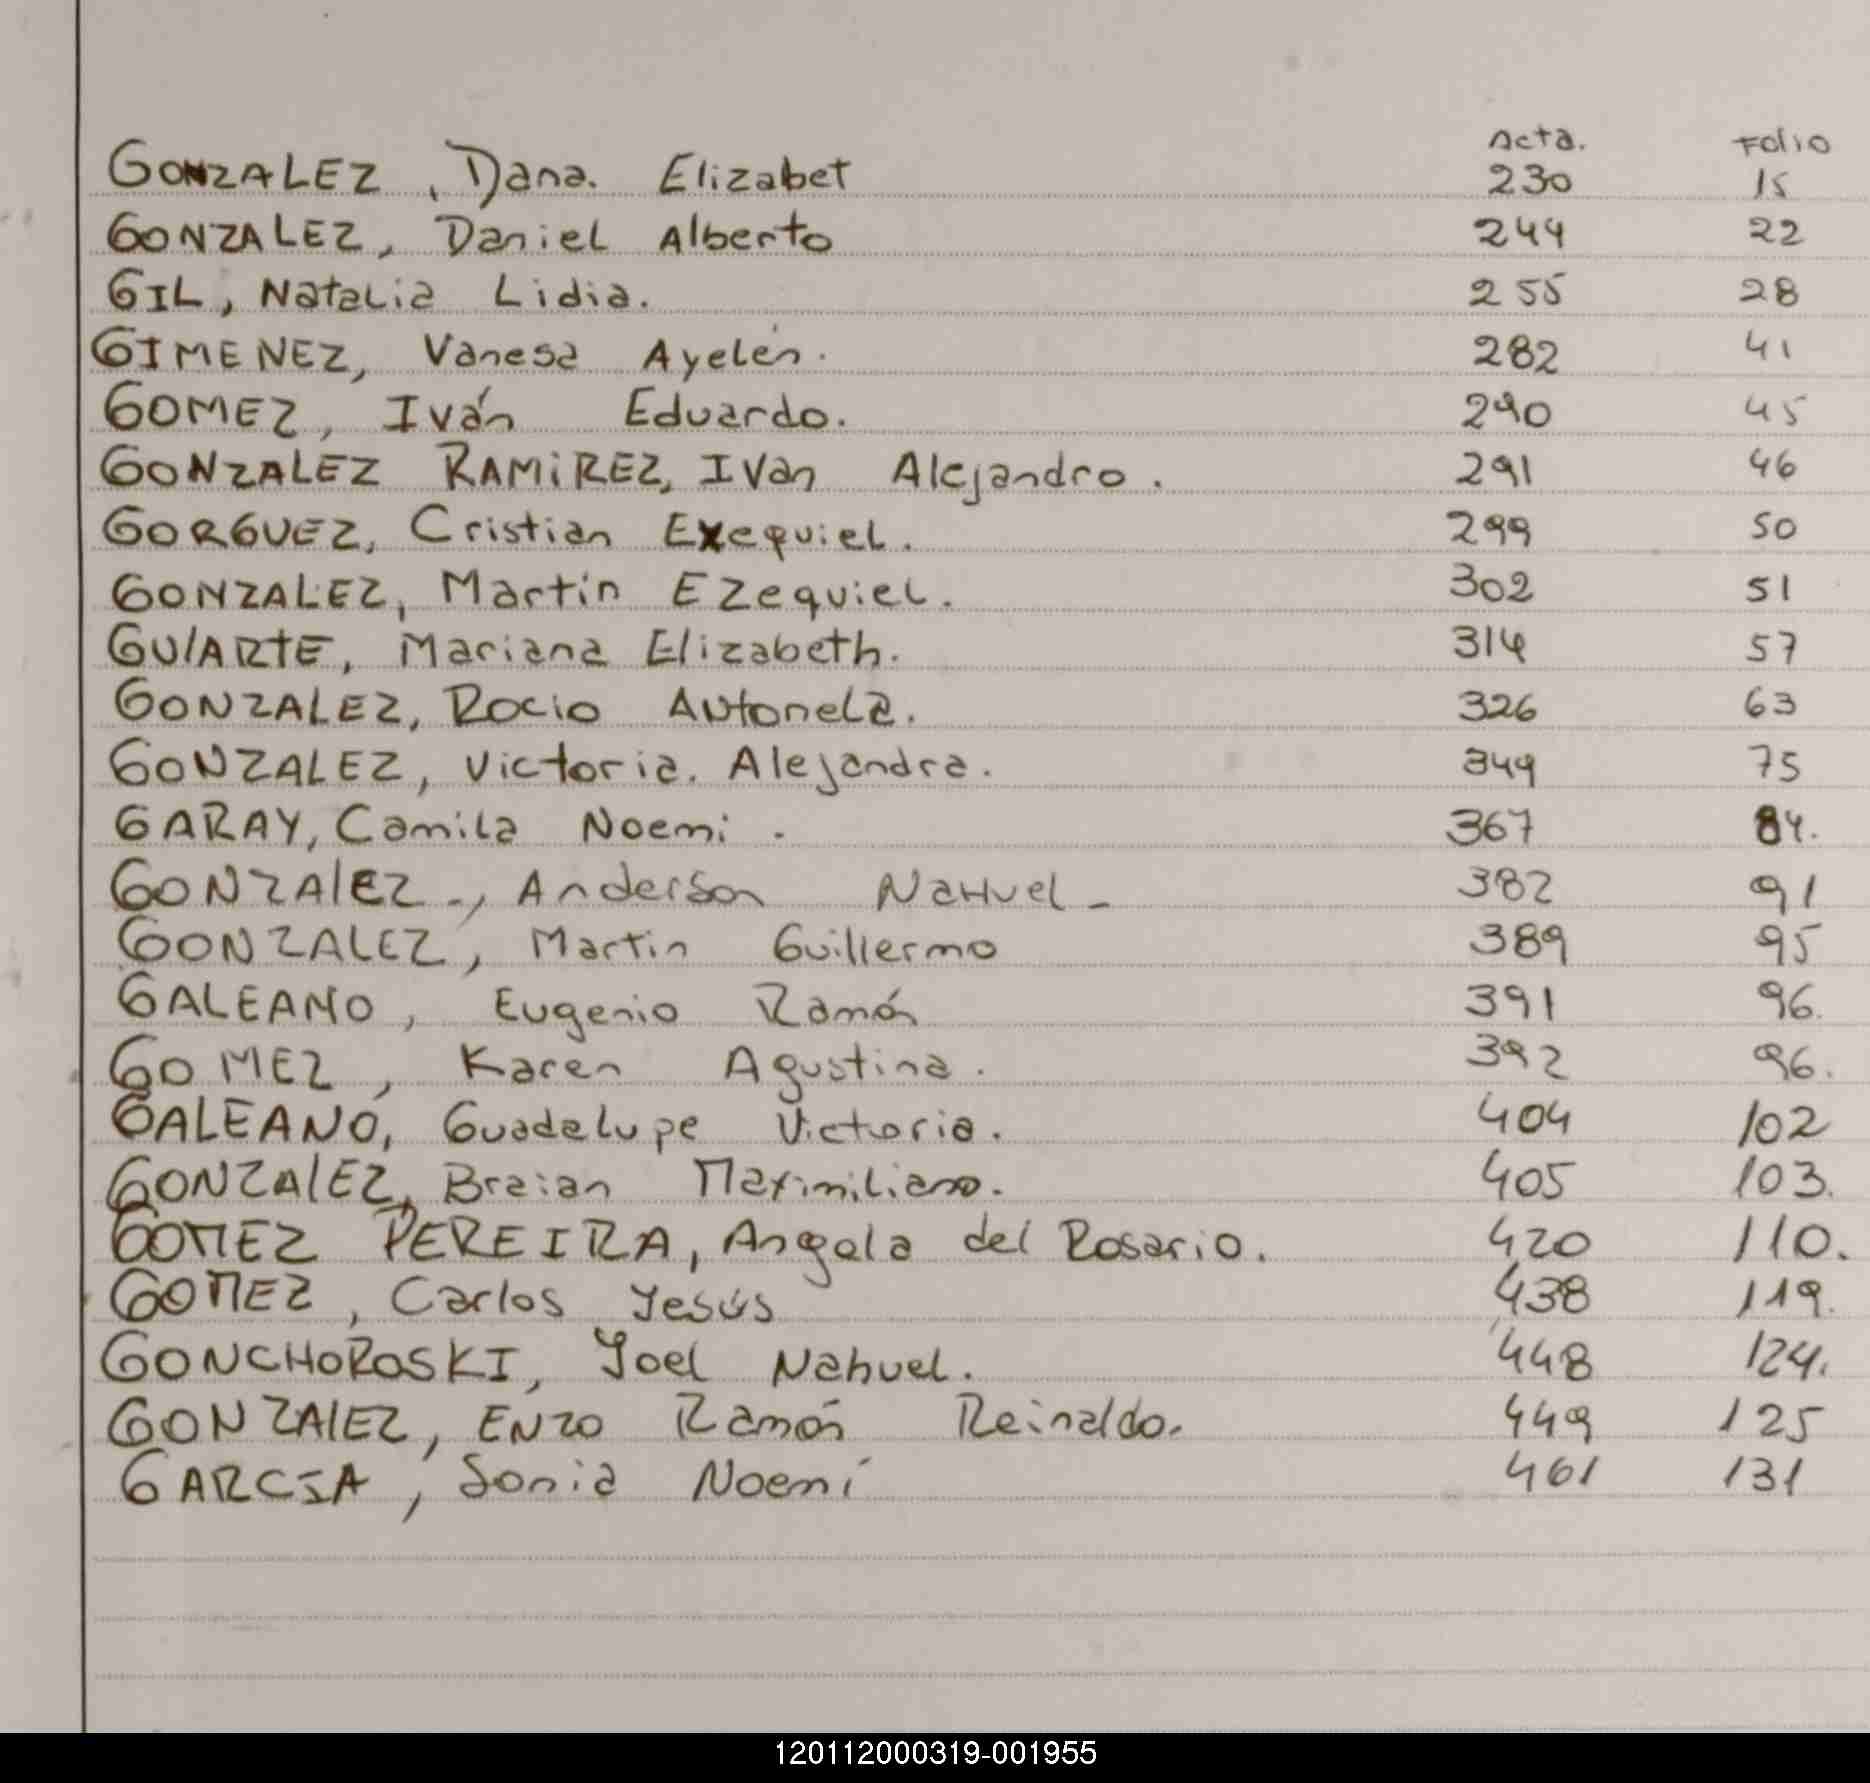 Acta. Folio
GONZALEZ, Dana. Elizabet 230 15
GONZALEZ, Daniel Alberto 244 22
GIL, Natalia Lidia. 255 28
GIMENEZ, Vanesa Ayelén. 282 41
GOMEZ, Iván Eduardo. 290 45
GONZALEZ RAMIREZ, Ivan Alejandro. 291 46
GORGUEZ, Cristian Exequiel. 299 50
GONZALEZ, Martin Ezequiel. 302 51
GUIARTE, Mariana Elizabeth. 314 57
GONZALEZ, Rocio Antonela. 326 63
GONZALEZ, Victoria. Alejandra. 349 75
GARAY, Camila Noemi. 367 84.
GONZALEZ-, Anderson NaHuel- 382 91
GONZALEZ, Martin Guillermo 389 95
GALEANO, Eugenio Ramón 391 96.
GOMEZ, Karen Agustina. 392 96.
GALEANO, Guadelupe Victoria. 404 102
GONZALEZ, Braian Maximiliano. 405 103.
GOMEZ PEREIRA, Angela del Rosario. 420 110.
GOMEZ, Carlos Jesús 438 119.
GONCHOROSKI, Joel Nahuel. 448 124.
GONZALEZ, Enzo Ramón Reinaldo. 449 125
GARCIA, Sonia Noemí 461 131
120112000319-001955